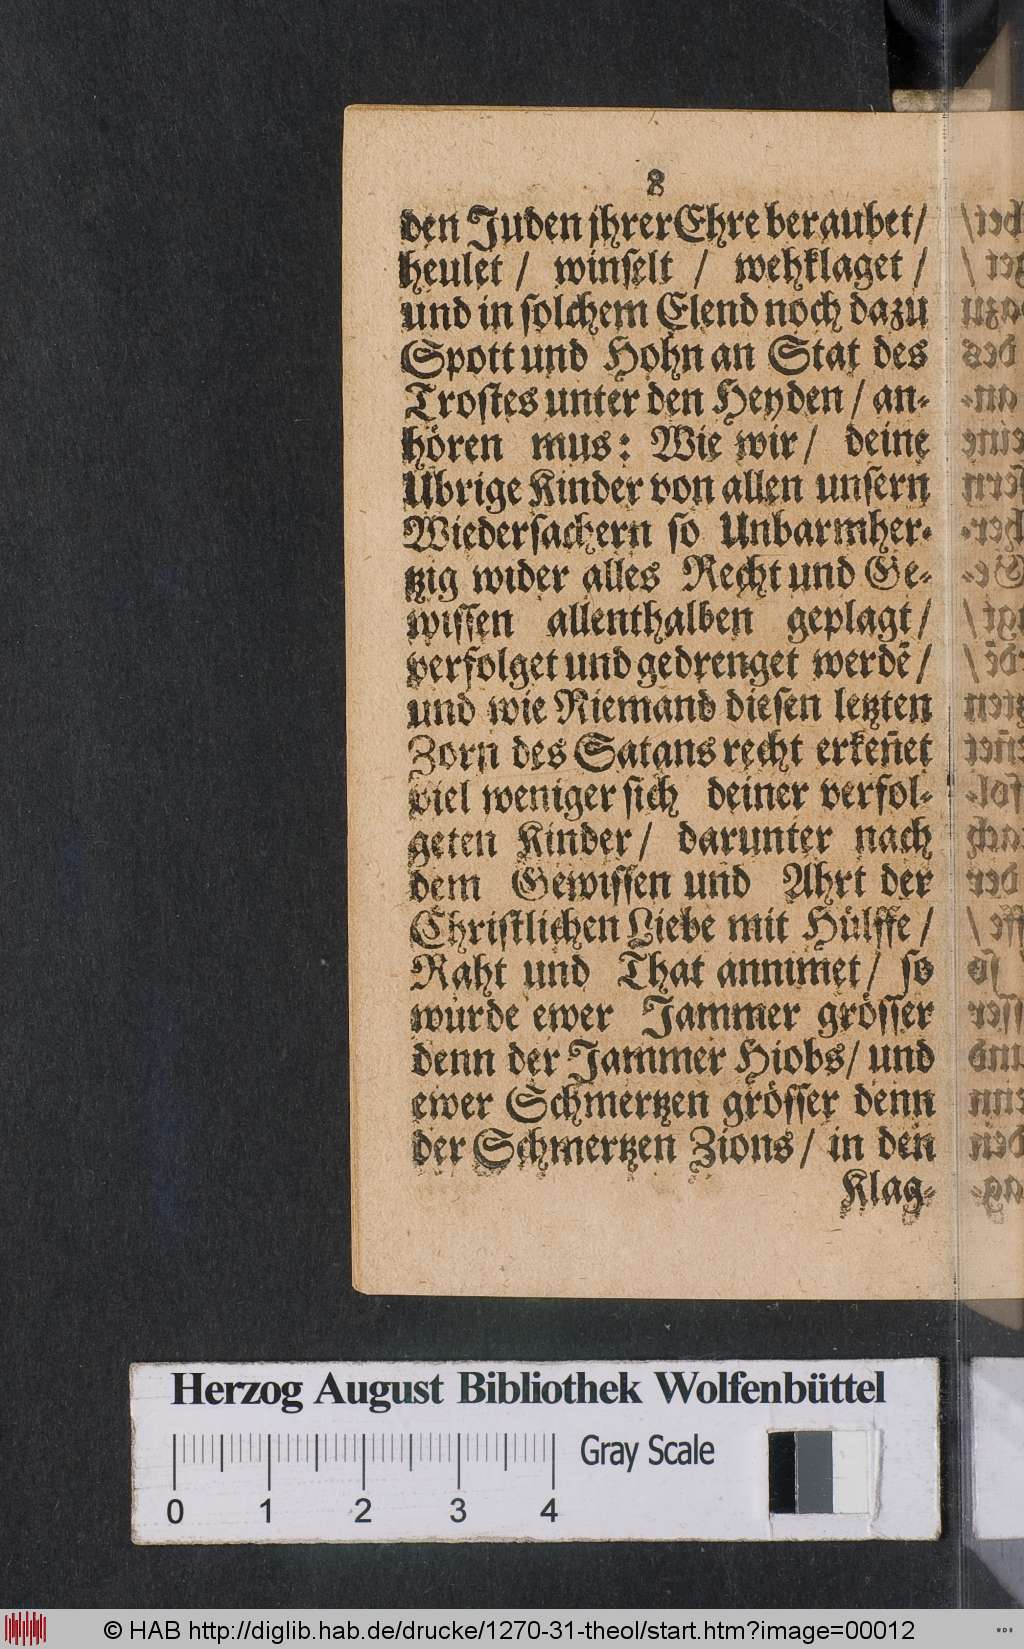 8
den Juden jhrer Ehre beraubet/
heulet / winselt / wehklaget /
und in solchem Elend noch dazu
Spott und Hohn an Stat des
Trostes unter den Heyden / an-
hören mus: Wie wir / deine
Übrige Kinder von allen unsern
Wiedersachern so Unbarmher-
tzig wider alles Recht und Ge-
wissen allenthalben geplagt /
verfolget und gedrenget werdē /
und wie Niemand diesen letzten
Zorn des Satans recht erkeñet
viel weniger sich deiner verfol-
geten Kinder / darunter nach
dem Gewissen und Ahrt der
Christlichen Liebe mit Hülffe /
Raht und That annim̃et / so
würde ewer Jammer grösser
denn der Jammer Hiobs / und
ewer Schmertzen grösser denn
der Schmertzen Zions / in den
Klag-
Herzog August Bibliothek Wolfenbüttel
Gray Scale
0 1 2 3 4
© HAB http://diglib.hab.de/drucke/1270-31-theol/start.htm?image=00012